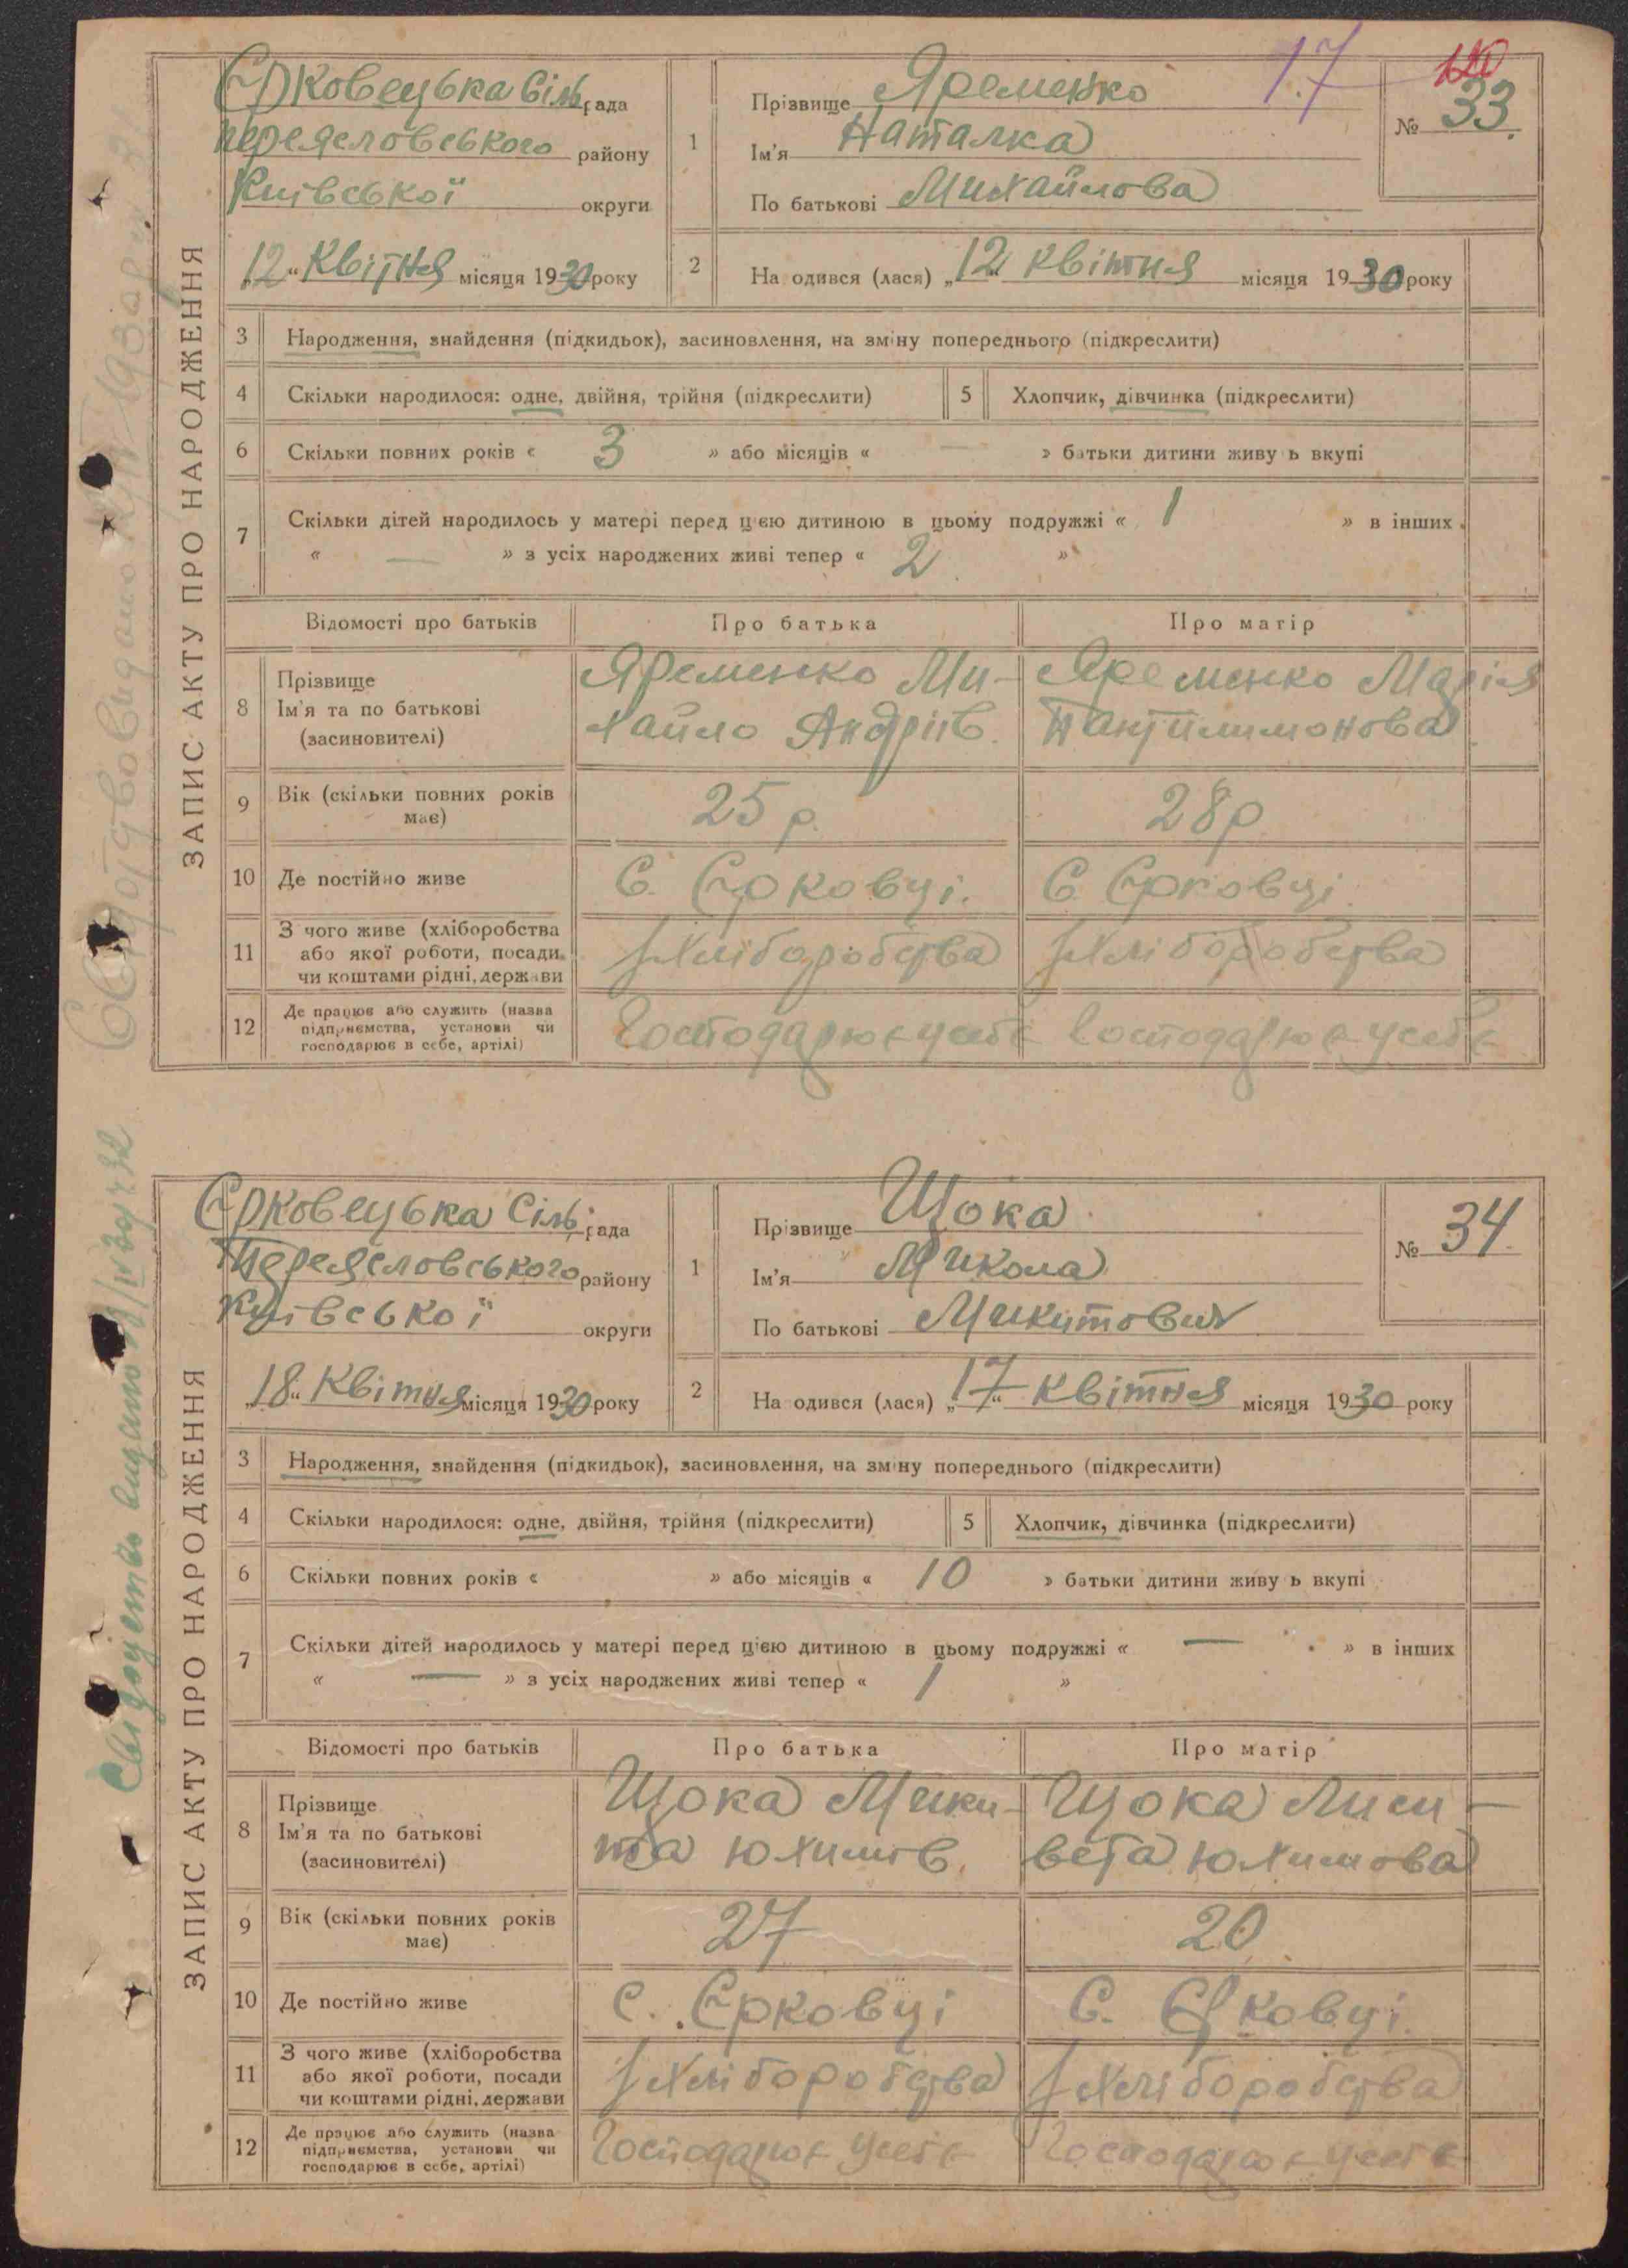 Єрковецька Сіль рада
Переяславського району
Київської округи
„12“ Квітня місяця 1930 року
1
Прізвище Яременко
Ім'я Наталка
По батькові Михайлова
17
120
№ 33.
2
На одився (лася) „12“ квітня місяця 1930 року
ЗАПИС АКТУ ПРО НАРОДЖЕННЯ
3 Народження, знайдення (підкидьок), засиновлення, на зміну попереднього (підкреслити)
4 Скільки народилося: одне, двійня, трійня (підкреслити) 5 Хлопчик, дівчинка (підкреслити)
6 Скільки повних років « 3 » або місяців « — » батьки дитини живу ь вкупі
7 Скільки дітей народилось у матері перед цією дитиною в цьому подружжі « 1 » в інших
« — » з усіх народжених живі тепер « 2 »
Відомості про батьків Про батька Про матір
8 Прізвище Ім'я та по батькові (засиновителі)
Яременко Ми- Яременко Марія
хайло Андріїв. Пантилимонова
9 Вік (скільки повних років має) 25 р. 28 р
10 Де постійно живе С. Єрковці. С. Єрковці.
11 З чого живе (хліборобства
або якої роботи, посади,
чи коштами рідні, держави
з Хліборобства з Хліборобства
12 Де працює або служить (назва
підприємства, установи чи
господарює в себе, артілі)
Господарює у себе Господарює у себе
Єрковецька Сіль рада
Переяславського району
Київської округи
„18“ Квітня місяця 1930 року
1
Прізвище Щока
Ім'я Микола
По батькові Микитович
№ 34
2
На одився (лася) „17“ квітня місяця 1930 року
Свидоцтво видано
ЗАПИС АКТУ ПРО НАРОДЖЕННЯ
3 Народження, знайдення (підкидьок), засиновлення, на зміну попереднього (підкреслити)
4 Скільки народилося: одне, двійня, трійня (підкреслити) 5 Хлопчик, дівчинка (підкреслити)
6 Скільки повних років « » або місяців « 10 » батьки дитини живу ь вкупі
7 Скільки дітей народилось у матері перед цією дитиною в цьому подружжі « — » в інших
« — » з усіх народжених живі тепер « 1 »
Відомості про батьків Про батька Про матір
8 Прізвище Ім'я та по батькові (засиновителі)
Щока Мики- Щока Лиси-
та Юхимів. вета Юхимова
9 Вік (скільки повних років має) 27 20
10 Де постійно живе С. Єрковці С. Єрковці.
11 З чого живе (хліборобства
або якої роботи, посади
чи коштами рідні, держави
з Хліборобства з Хліборобства
12 Де працює або служить (назва
підприємства, установи чи
господарює в себе, артілі)
Господарює у себе Господарює у себе